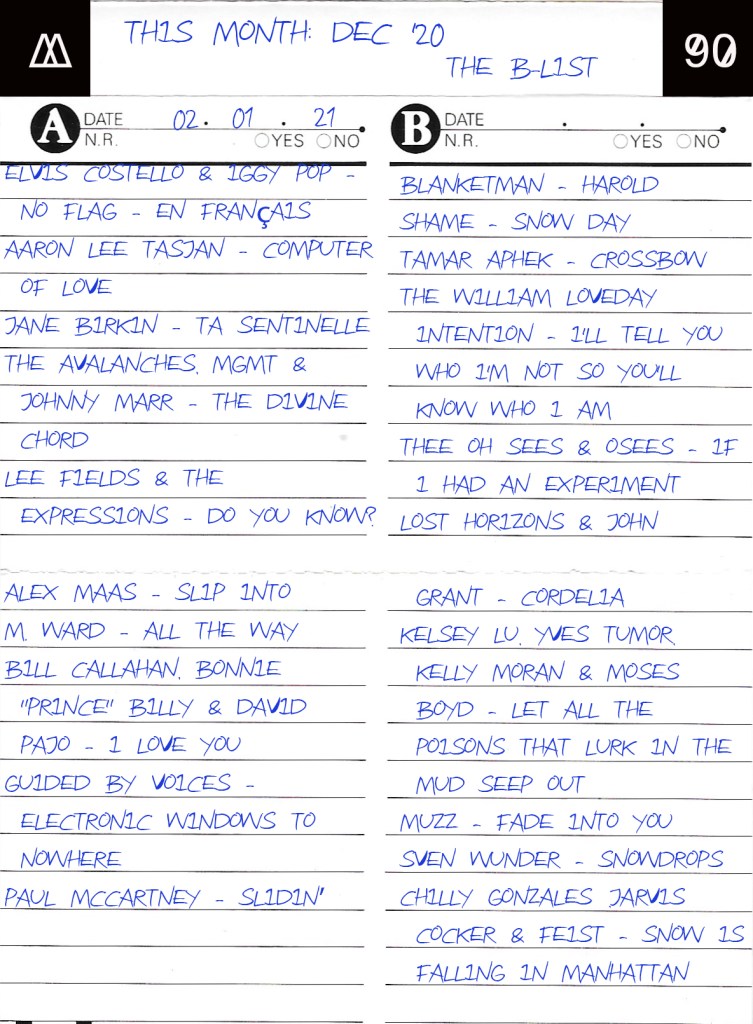 THIS MONTH: DEC '20
THE B-LIST
90
A DATE 02. 01. 21
N.R. YES NO
ELVIS COSTELLO & IGGY POP -
NO FLAG - EN FRANÇAIS
AARON LEE TASJAN - COMPUTER
OF LOVE
JANE BIRKIN - TA SENTINELLE
THE AVALANCHES, MGMT &
JOHNNY MARR - THE DIVINE
CHORD
LEE FIELDS & THE
EXPRESSIONS - DO YOU KNOW?
ALEX MAAS - SLIP INTO
M. WARD - ALL THE WAY
BILL CALLAHAN, BONNIE
"PRINCE" BILLY & DAVID
PAJO - I LOVE YOU
GUIDED BY VOICES -
ELECTRONIC WINDOWS TO
NOWHERE
PAUL MCCARTNEY - SLIDIN'
B DATE . .
N.R. YES NO
BLANKETMAN - HAROLD
SHAME - SNOW DAY
TAMAR APHEK - CROSSBOW
THE WILLIAM LOVEDAY
INTENTION - I'LL TELL YOU
WHO I'M NOT SO YOU'LL
KNOW WHO I AM
THEE OH SEES & OSEES - IF
I HAD AN EXPERIMENT
LOST HORIZONS & JOHN
GRANT - CORDELIA
KELSEY LU, YVES TUMOR,
KELLY MORAN & MOSES
BOYD - LET ALL THE
POISONS THAT LURK IN THE
MUD SEEP OUT
MUZZ - FADE INTO YOU
SVEN WUNDER - SNOWDROPS
CHILLY GONZALES JARVIS
COCKER & FEIST - SNOW IS
FALLING IN MANHATTAN